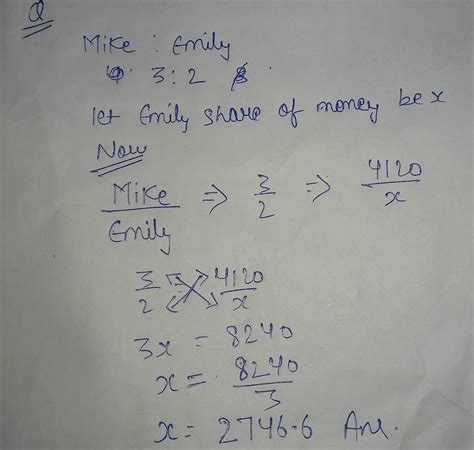 Q
Mike : Emily
3 : 2
let Emily share of money be x
Now
Mike/Emily => 3/2 => 4120/x
3/2 4120/x
3x = 8240
x = 8240/3
x = 2746.6 Ans.